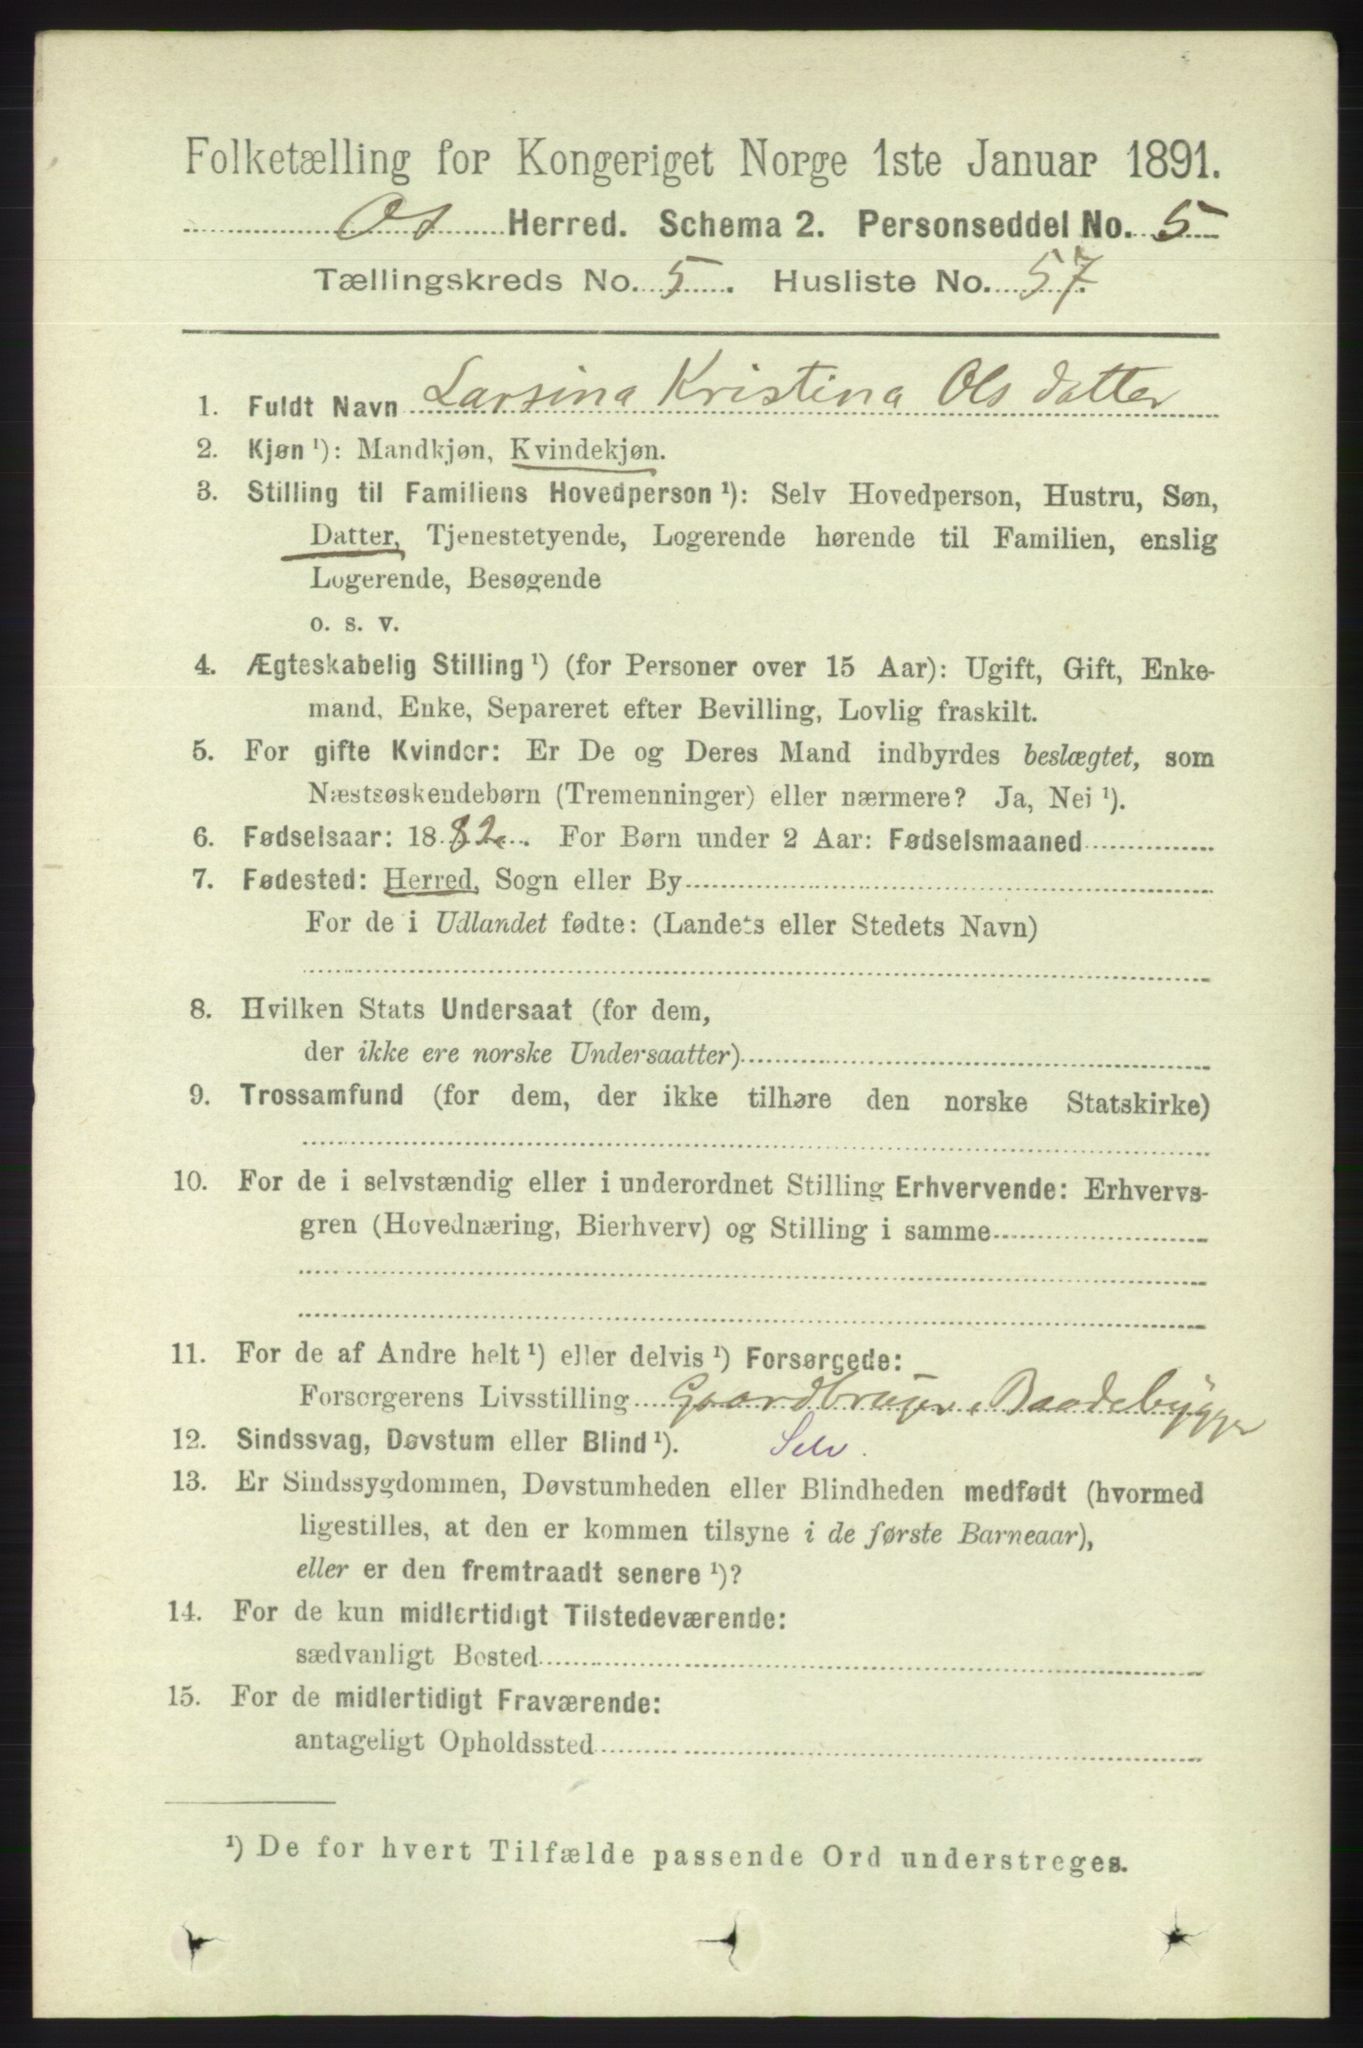 Folketælling for Kongeriget Norge 1ste Januar 1891.
Os Herred. Schema 2. Personseddel No. 5
Tællingskreds No. 5. Husliste No. 57.
1. Fuldt Navn Larsina Kristina Olsdatter
2. Kjøn ¹): Mandkjøn, Kvindekjøn.
3. Stilling til Familiens Hovedperson ¹): Selv Hovedperson, Hustru, Søn,
Datter, Tjenestetyende, Logerende hørende til Familien, enslig
Logerende, Besøgende
o. s. v.
4. Ægteskabelig Stilling ¹) (for Personer over 15 Aar): Ugift, Gift, Enke-
mand, Enke, Separeret efter Bevilling, Lovlig fraskilt.
5. For gifte Kvinder: Er De og Deres Mand indbyrdes beslægtet, som
Næstsøskendebørn (Tremenninger) eller nærmere? Ja, Nei ¹).
6. Fødselsaar: 1882. For Børn under 2 Aar: Fødselsmaaned
7. Fødested: Herred, Sogn eller By
For de i Udlandet fødte: (Landets eller Stedets Navn)
8. Hvilken Stats Undersaat (for dem,
der ikke ere norske Undersaatter)
9. Trossamfund (for dem, der ikke tilhøre den norske Statskirke)
10. For de i selvstændig eller i underordnet Stilling Erhvervende: Erhvervs-
gren (Hovednæring, Bierhverv) og Stilling i samme
11. For de af Andre helt ¹) eller delvis ¹) Forsørgede:
Forsørgerens Livsstilling Gaardbruger, Baadebygger
12. Sindssvag, Døvstum eller Blind ¹). Selv.
13. Er Sindssygdommen, Døvstumheden eller Blindheden medfødt (hvormed
ligestilles, at den er kommen tilsyne i de første Barneaar),
eller er den fremtraadt senere ¹)?
14. For de kun midlertidigt Tilstedeværende:
sædvanligt Bosted
15. For de midlertidigt Fraværende:
antageligt Opholdssted
¹) De for hvert Tilfælde passende Ord understreges.